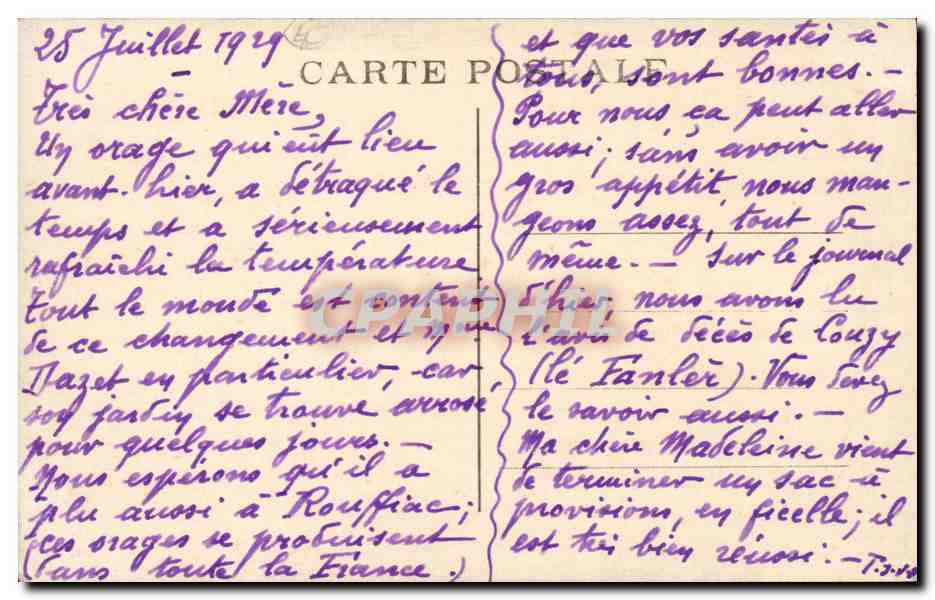 25 Juillet 1929
CARTE POSTALE
Très chère Mère,
Un orage qui eût lieu
avant-hier, a détraqué le
temps et a sérieusement
rafraîchi la température
Tout le monde est content
de ce changement et Mme
Dazet en particulier, car,
son jardin se trouve arrosé
pour quelques jours. —
Nous espérons qu'il a
plu aussi à Rouffiac;
(ces orages se produisent
dans toute la France.)
et que vos santés à
tous, sont bonnes. —
Pour nous, ça peut aller
aussi; sans avoir un
gros appétit, nous man-
geons assez, tout de
même. — Sur le journal
d'hier, nous avons lu
l'avis de décès de Couzy
(lé Fanlèr). Vous devez
le savoir aussi. —
Ma chère Madeleine vient
de terminer un sac à
provisions, en ficelle; il
est très bien réussi. —
CPAPHIL